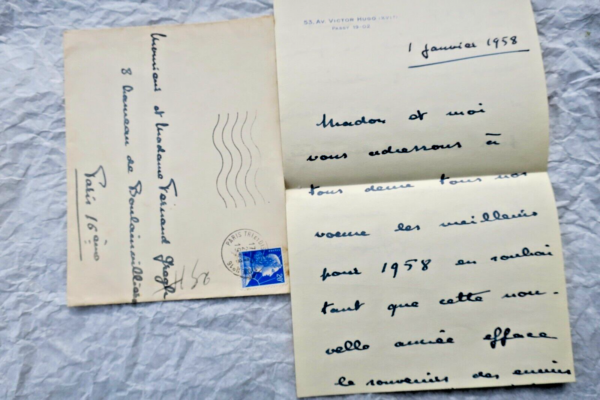 53, Av. VICTOR HUGO
1 Janvier 1958
Madou et moi
vous adressons à
tous deux tous nos
voeux les meilleurs
pour 1958 en souhai
tant que cette nou-
velle année efface
le souvenir des ennuis
Monsieur et Madame Fernand Gregh
8 hameau de Boulainvilliers
Paris 16ème
PARIS